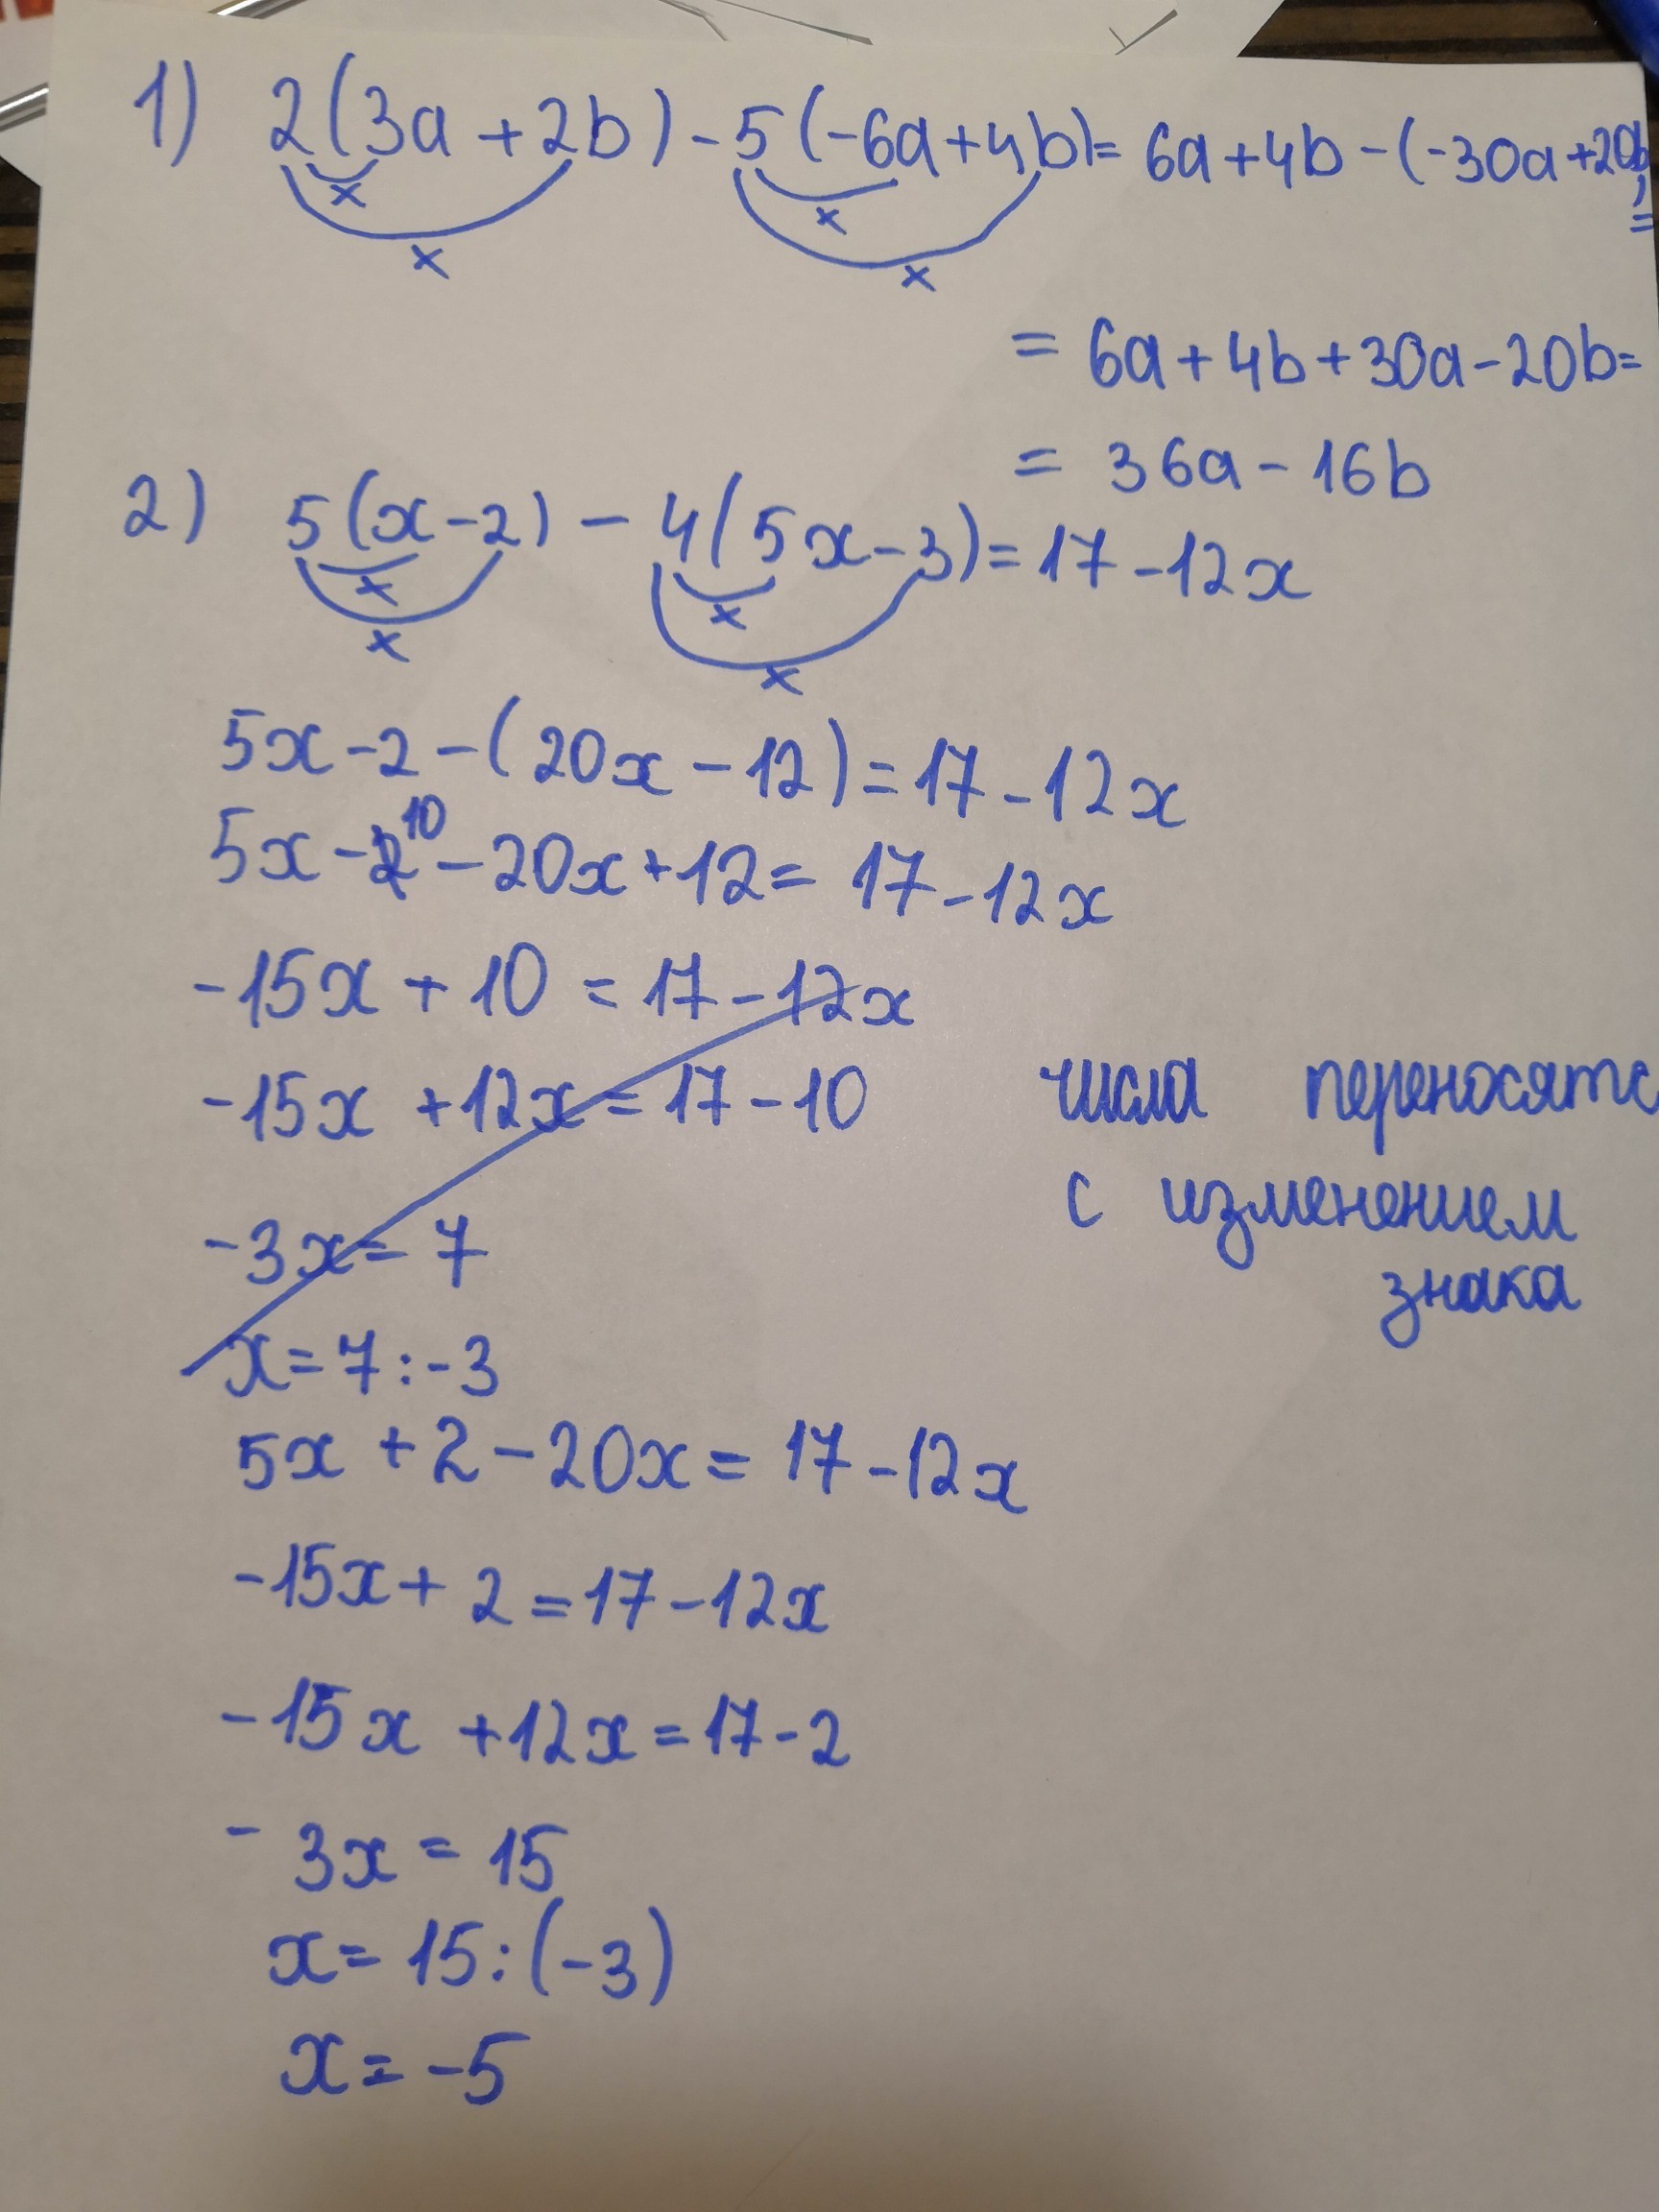 1) 2(3a+2b)-5(-6a+4b)=6a+4b-(-30a+20b)=
x x x x
=6a+4b+30a-20b=
=36a-16b
2) 5(x-2)-4(5x-3)=17-12x
x x x x
5x-2-(20x-12)=17-12x
5x-2 10 -20x+12=17-12x
-15x+10=17-12x
-15x+12x=17-10 числа переносятс
-3x=7 с изменением
x=7:-3 знака
5x+2-20x=17-12x
-15x+2=17-12x
-15x+12x=17-2
-3x=15
x=15:(-3)
x=-5